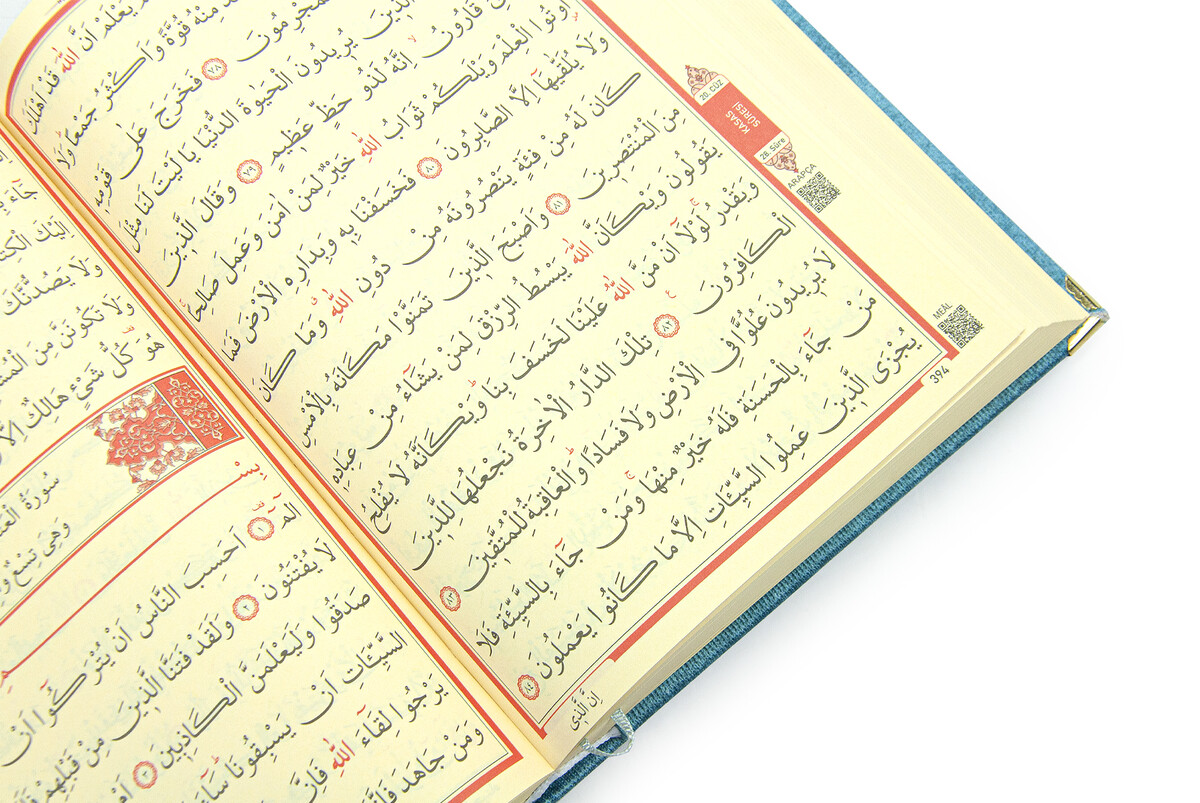 يَعْلَمْ اَنَّ اللّٰهَ قَدْ اَهْلَكَ
مِنْهُ قُوَّةً وَاَكْثَرُ جَمْعًا وَلَا
الْمُجْرِمُونَ ﴿٧٨﴾ فَخَرَجَ عَلٰى قَوْمِه۪
الَّذ۪ينَ يُر۪يدُونَ الْحَيٰوةَ الدُّنْيَا يَا لَيْتَ لَنَا مِثْلَ
قَارُونُ اِنَّهُ لَذُو حَظٍّ عَظ۪يمٍ ﴿٧٩﴾ وَقَالَ الَّذ۪ينَ
اُو۫تُوا الْعِلْمَ وَيْلَكُمْ ثَوَابُ اللّٰهِ خَيْرٌ لِمَنْ اٰمَنَ وَعَمِلَ صَالِحًا
وَلَا يُلَقّٰيهَٓا اِلَّا الصَّابِرُونَ ﴿٨٠﴾ فَخَسَفْنَا بِه۪ وَبِدَارِهِ الْاَرْضَ فَمَا
كَانَ لَهُ مِنْ فِئَةٍ يَنْصُرُونَهُ مِنْ دُونِ اللّٰهِ وَمَا كَانَ
مِنَ الْمُنْتَصِر۪ينَ ﴿٨١﴾ وَاَصْبَحَ الَّذ۪ينَ تَمَنَّوْا مَكَانَهُ بِالْاَمْسِ
يَقُولُونَ وَيْكَاَنَّ اللّٰهَ يَبْسُطُ الرِّزْقَ لِمَنْ يَشَٓاءُ مِنْ عِبَادِه۪
وَيَقْدِرُ لَوْلَٓا اَنْ مَنَّ اللّٰهُ عَلَيْنَا لَخَسَفَ بِنَا وَيْكَاَنَّهُ لَا يُفْلِحُ
الْكَافِرُونَ ﴿٨٢﴾ تِلْكَ الدَّارُ الْاٰخِرَةُ نَجْعَلُهَا لِلَّذ۪ينَ
لَا يُر۪يدُونَ عُلُوًّا فِي الْاَرْضِ وَلَا فَسَادًا وَالْعَاقِبَةُ لِلْمُتَّق۪ينَ ﴿٨٣﴾
مَنْ جَٓاءَ بِالْحَسَنَةِ فَلَهُ خَيْرٌ مِنْهَا وَمَنْ جَٓاءَ بِالسَّيِّئَةِ فَلَا
يُجْزَى الَّذ۪ينَ عَمِلُوا السَّيِّـَٔاتِ اِلَّا مَا كَانُوا يَعْمَلُونَ ﴿٨٤﴾
اِنَّ الَّذ۪ي
20. CÜZ
KASAS
SÛRESİ
28. Sûre
ARAPÇA
MEÂL
394
اِلَيْكَ
وَلَا يَصُدُّنَّكَ
وَلَا تَكُونَنَّ مِنَ
هُوَ كُلُّ شَيْءٍ هَالِكٌ اِلَّا
سُورَةُ
وَهِيَ تِسْعٌ
الٓمٓ ﴿١﴾ اَحَسِبَ النَّاسُ اَنْ يُتْرَكُٓوا اَنْ
لَا يُفْتَنُونَ ﴿٢﴾ وَلَقَدْ فَتَنَّا الَّذ۪ينَ مِنْ قَبْلِهِمْ
صَدَقُوا وَلَيَعْلَمَنَّ الْكَاذِب۪ينَ ﴿٣﴾ اَمْ
السَّيِّـَٔاتِ اَنْ يَسْبِقُونَا سَٓاءَ
يَرْجُوا لِقَٓاءَ اللّٰهِ فَاِنَّ
وَمَنْ جَاهَدَ فَاِنَّمَا